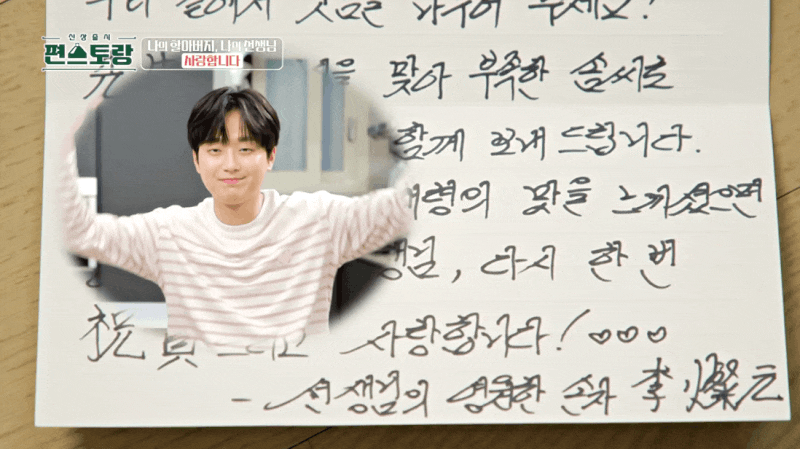 신상출시
편스토랑
나의 할아버지, 나의 선생님
사랑합니다
주세요!
을 맞아 부족한 솜씨로
함께 보내 드립니다.
맛을 느끼셨으면
다시 한 번
祝 사랑합니다! ♡♡♡
- 선생님의 영원한 손자 李燦元